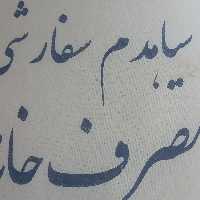 سیاهدم سفارشی
مصرف